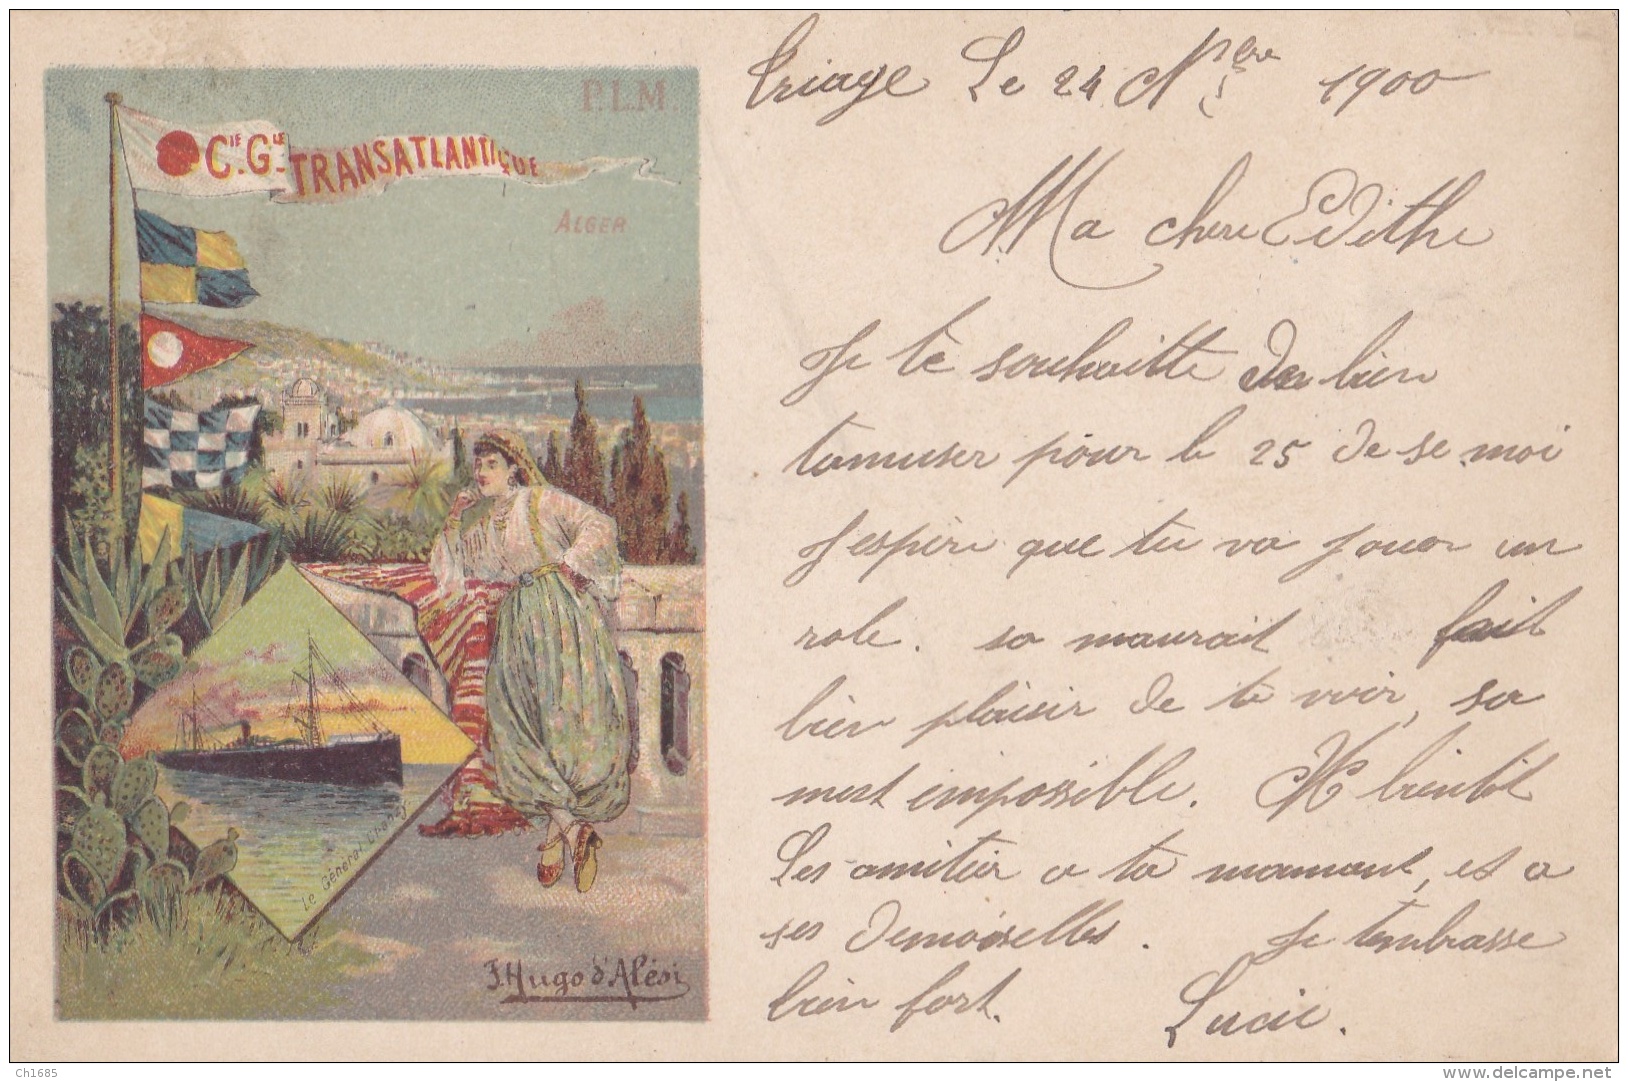 P.L.M
Cie Gle TRANSATLANTIQUE
ALGER
Le Général Chanzy
F. Hugo d'Alési
Triage Le 24 Nbre 1900
Ma chere Edithe
Je te souhaitte de bien
tamuser pour le 25 de se moi
J espère que tu va jouer un
role. sa maurait fait
bien plaisir de te voir, sa
mest impossible. A bientit
Les amitier a ta mamant, et a
ses demoiselles. Je tembrasse
bien fort. Lucie.
Ch1685
delcampe.net